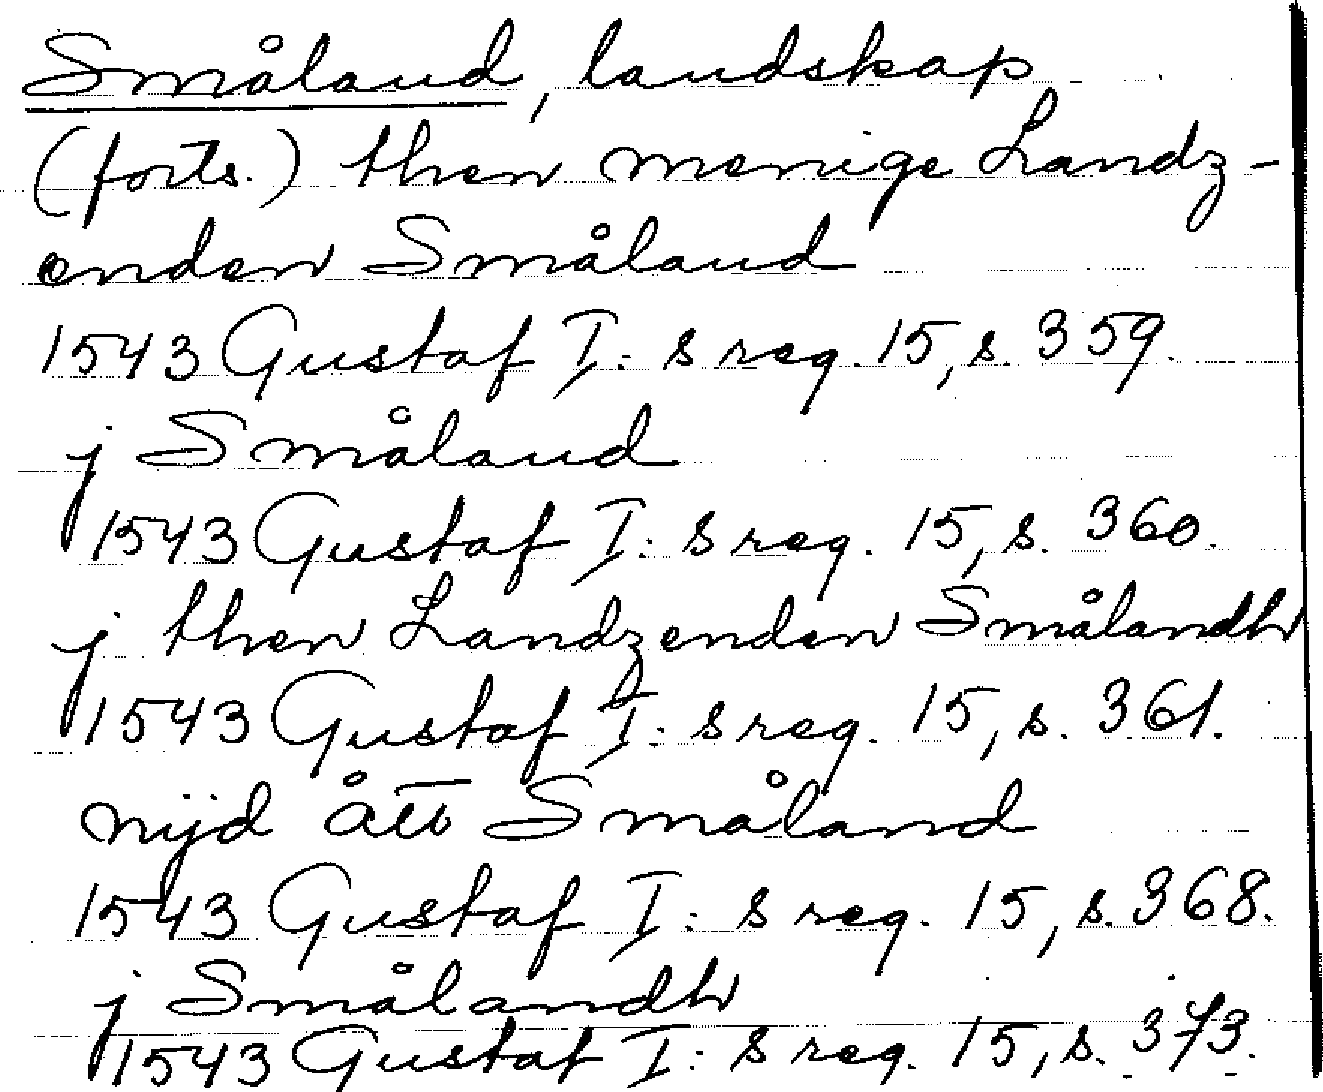 Småland, landskap
(forts.) then menige Landz-
enden Småland
1543 Gustaf I:s reg. 15, s. 359.
j Småland
1543 Gustaf I:s reg. 15, s. 360.
j then Landzenden Smålandh
1543 Gustaf I:s reg. 15, s. 361.
nijdått Småland
1543 Gustaf I:s reg. 15, s. 368.
j Smålandh
1543 Gustaf I:s reg. 15, s. 373.